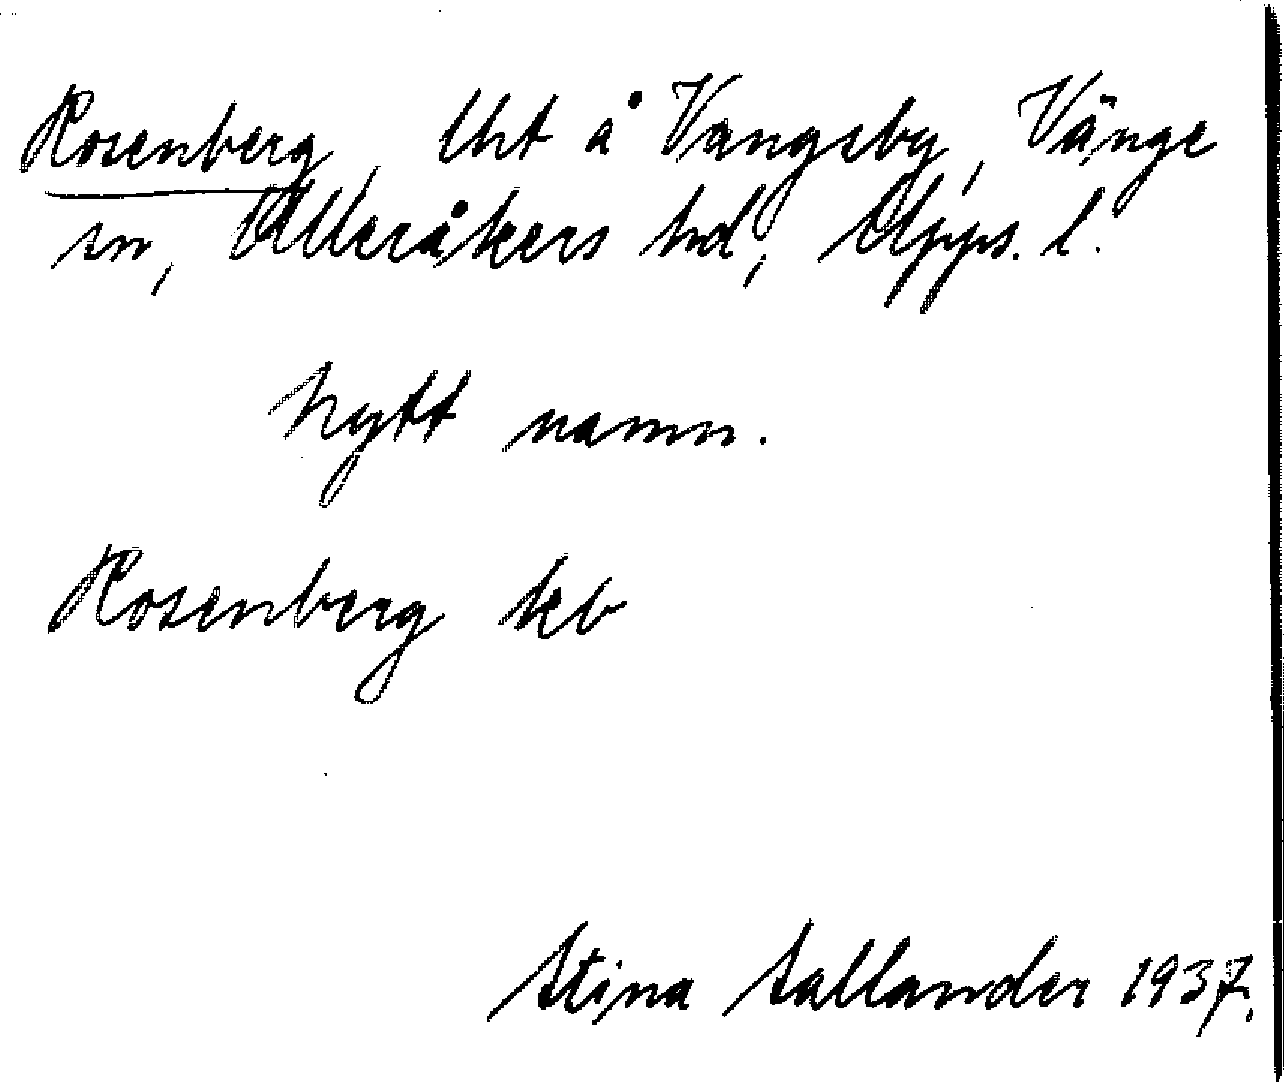 Rosenberg, lht å Vangsby, Vänge
sn, Ulleråkers hd, Upps. l.
Nytt namn.
Rosenberg kb
Stina Sallander 1937.